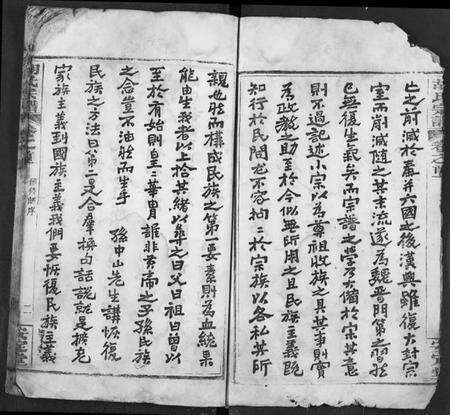 亡之前減於秦并六國之後漢興雖復大封宗
室而削減隨之其末流遂為魏晉門第之習然
已無復生氣矣而宗譜之學乃大獨於宗其意
則不過記述小宗以為尊祖收族之具其事則實
為政教之助至於今似無所用之且民族主義既
知行於民間尤不容拘拘於宗族以各私其所
親也然而構成民族之第一要素則為血統果
能由生我者以上拾其緒以尋之曰父曰祖曰曾以
至於有始則皇皇華胄誰非黃帝之子孫民族
之念豈不油然而生乎　孫中山先生講恢復
民族之方法曰第二是合羣換句話說就是擴充
家族主義到國族主義我們要恢復民族主義
卷之首